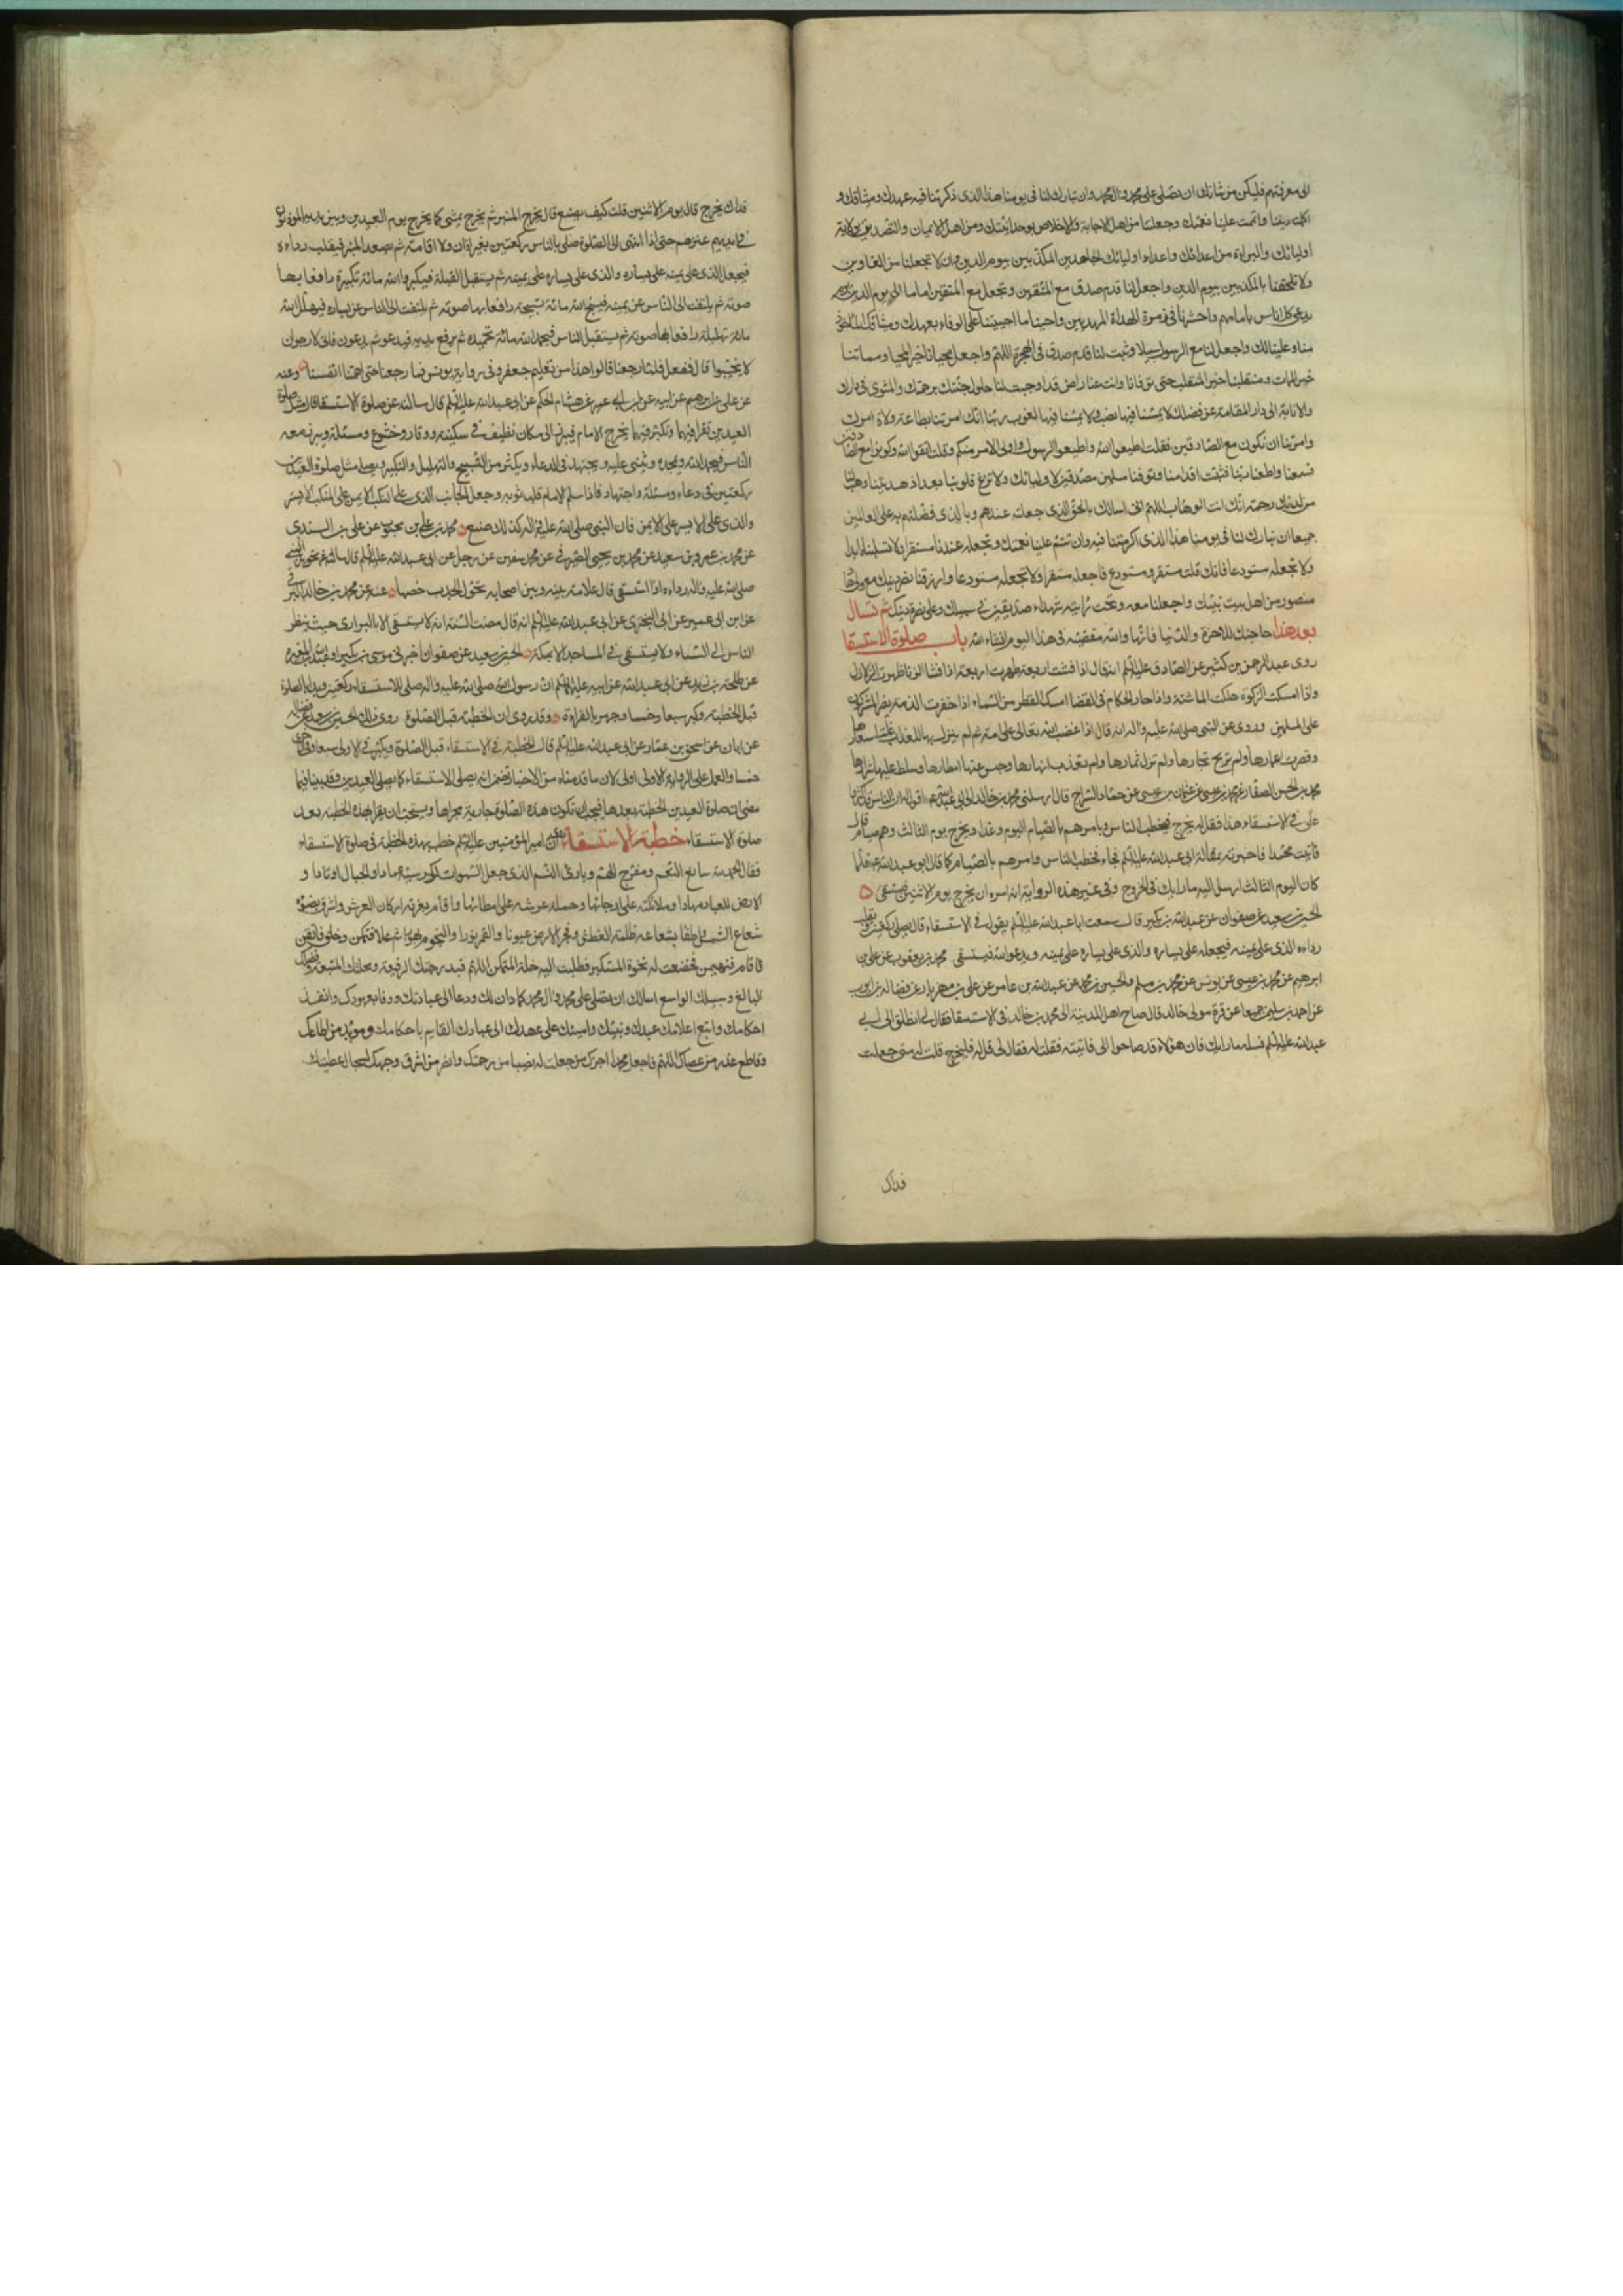 الى معرفتهم فليكن من شانك ان تصلى على محمد وال محمد وان تبارك لنا فى يومنا هذا الذى ذكرتنا فيه عهدك وميثاقك و
اكملت ديننا واتممت علينا نعمتك وجعلتنا من اهل الاجابة والاخلاص بوحدانيتك ومن اهل الايمان والتصديق بولاية
اوليائك والبراءة من اعدائك واعداء اوليائك الجاحدين المكذبين بيوم الدين وان لا تجعلنا من الغاوين
ولا تلحقنا بالمكذبين بيوم الدين واجعل لنا قدم صدق مع المتقين وتجعل مع المتقين اماما الى يوم الدين يوم
يدعى كل اناس بامامهم واحشرنا فى زمرة الهداة المهديين واحينا ما احييتنا على الوفاء بعهدك وميثاقك
منا وعلينا لك واجعل لنا مع الرسول سبيلا وثبت لنا قدم صدق فى الهجرة اللهم واجعل محيانا خير المحيا ومماتنا
خير الممات ومنقلبنا خير المنقلب حتى توفانا وانت عنا راض قد اوجبت لنا حلول جنتك برحمتك والمثوى فى دارك
والانابة الى دار المقامة من فضلك لا يمسنا فيها نصب ولا يمسنا فيها لغوب ربنا انك امرتنا بطاعة ولاة امرك
وامرتنا ان نكون مع الصادقين فقلت اطيعوا الله واطيعوا الرسول واولى الامر منكم وقلت اتقوا الله وكونوا مع الصادقين
فسمعنا واطعنا ربنا فثبت اقدامنا وتوفنا مسلمين مصدقين لاوليائك ولا تزغ قلوبنا بعد اذ هديتنا وهب لنا
من لدنك رحمة انك انت الوهاب اللهم انى اسالك بالحق الذى جعلته عندهم وبالذى فضلتهم به على العالمين
جميعا ان تبارك لنا فى يومنا هذا الذى اكرمتنا فيه وان تتم علينا نعمتك وتجعله عندنا مستقرا ولا تسلبناه ابدا
ولا تجعله مستودعا فانك قلت مستقر ومستودع فاجعله مستقرا ولا تجعله مستودعا وارزقنا نصر دينك مع ولى هاد
منصور من اهل بيت نبيك واجعلنا معه وتحت رايته شهداء صديقين فى سبيلك وعلى نصرة دينك ثم تسال
بعد هذا حاجتك للاخرة والدنيا فانها والله مقضية فى هذا اليوم ان شاء الله باب صلوة الاستسقا
روى عبد الرحمن بن كثير عن الصادق عليه السلم انه قال اذا فشت اربعة ظهرت اربعة اذا فشا الزنا ظهرت الزلازل
واذا امسكت الزكوة هلكت الماشية واذا جار الحكام فى القضا امسك القطر من السماء اذا خفرت الذمة نصر المشركون
على المسلمين وروى عن النبى صلى الله عليه واله انه قال اذا غضب الله تعالى على امة ثم لم ينزل بها العذاب غلت اسعارها
وقصرت اعمارها ولم تربح تجارها ولم تزك ثمارها ولم تعذب انهارها وحبس عنها امطارها وسلط عليها شرارها
محمد بن الحسن الصفار عن محمد بن عيسى عن عثمان بن عيسى عن حماد السراج قال ارسلنى محمد بن خالد الى ابى عبد الله اقول له ان الناس قد اكثروا
على فى الاستسقاء هذا فقل له يخرج فيخطب الناس ويامرهم بالصيام اليوم وغدا ويخرج يوم الثالث وهم صيام قال
فاتيت محمدا فاخبرته بمقالة ابى عبد الله عليه السلم فجاء فخطب الناس وامرهم بالصيام كما قال ابو عبد الله فلما
كان اليوم الثالث ارسل اليه ما رايك فى الخروج وفى غير هذه الرواية انه امره ان يخرج يوم الاثنين فيستسقى
الحسين بن سعيد عن صفوان عن عبد الله بن بكير قال سمعت ابا عبد الله عليه السلم يقول فى الاستسقاء قال يصلى ركعتين ويقلب
رداءه الذى على يمينه فيجعله على يساره والذى على يساره على يمينه ويدعو الله فيستسقى محمد بن يعقوب عن على بن
ابرهيم عن محمد بن عيسى عن يونس عن محمد بن مسلم والحسين بن محمد عن عبد الله بن عامر عن على بن مهزيار عن فضالة بن ايوب
عن احمد بن سليمن جميعا عن قرة مولى خالد قال صاح اهل المدينة الى محمد بن خالد فى الاستسقا فقال لى انطلق الى ابى
عبد الله عليه السلم فسله ما رايك فان هؤلاء قد صاحوا الى فاتيته فقلت له فقال لى قل له فليخرج قلت له متى جعلت
فداك
فداك يخرج قال يوم الاثنين قلت كيف يصنع قال يخرج المنبر ثم يخرج يمشى كما يخرج يوم العيدين وبين يديه المؤذنون
فى ايديهم عنزهم حتى اذا انتهى الى المصلى صلى بالناس ركعتين بغير اذان ولا اقامة ثم يصعد المنبر فيقلب رداءه
فيجعل الذى على يمينه على يساره والذى على يساره على يمينه ثم يستقبل القبلة فيكبر الله مائة تكبيرة رافعا بها
صوته ثم يلتفت الى الناس عن يمينه فيسبح الله مائة تسبيحة رافعا بها صوته ثم يلتفت الى الناس عن يساره فيهلل الله
مائة تهليلة رافعا بها صوته ثم يستقبل الناس فيحمد الله مائة تحميدة ثم يرفع يديه فيدعو ثم يدعون فانى لارجو ان
لا يخيبوا قال ففعل فلما رجعنا قالوا هذا من تعليم جعفر وفى رواية يونس فما رجعنا حتى اهمتنا انفسنا وعنه
عن على بن ابرهيم عن ابيه عن ابن ابى عمير عن هشام بن الحكم عن ابى عبد الله عليه السلم قال سالته عن صلوة الاستسقا قال مثل صلوة
العيدين تقرا فيها وتكبر فيها يخرج الامام فيبرز الى مكان نظيف فى سكينة ووقار وخشوع ومسئلة ويبرز معه
الناس فيحمد الله ويمجده ويثنى عليه ويجتهد فى الدعاء ويكثر من التسبيح والتهليل والتكبير ويصلى مثل صلوة العيدين
ركعتين فى دعاء ومسئلة واجتهاد فاذا سلم الامام قلب ثوبه وجعل الجانب الذى على المنكب الايمن على المنكب الايسر
والذى على الايسر على الايمن فان النبى صلى الله عليه واله كذلك صنع محمد بن على بن محبوب عن على بن السندى
عن محمد بن عمرو بن سعيد عن محمد بن يحيى الصيرفى عن محمد بن سفين عن رجل عن ابى عبد الله عليه السلم قال سالته عن تحويل النبى
صلى الله عليه واله رداءه اذا استسقى قال علامة بينه وبين اصحابه تحول الجدب خصبا عنه عن محمد بن خالد البرقى
عن ابن ابى عمير عن ابى البخترى عن ابى عبد الله عليه السلم انه قال مضت السنة انه لا يستسقى الا بالبرارى حيث ينظر
الناس الى السماء ولا يستسقى فى المساجد الا بمكة الحسين بن سعيد عن صفوان اخبرنى موسى بن بكير او عبد الله بن المغيرة
عن طلحة بن زيد عن ابى عبد الله عن ابيه عليهما السلم ان رسول الله صلى الله عليه واله صلى للاستسقاء ركعتين وبدا بالصلوة
قبل الخطبة وكبر سبعا وخمسا وجهر بالقراءة وقد روى ان الخطبة قبل الصلوة روى ذلك الحسين بن سعيد عن فضالة
عن ابان عن اسحق بن عمار عن ابى عبد الله عليه السلم قال الخطبة فى الاستسقاء قبل الصلوة ويكبر فى الاولى سبعا وفى الاخرى
خمسا والعمل على الرواية الاولى اولى لان ما قدمناه من الاخبار تضمن انه يصلى الاستسقاء كما يصلى العيدين وقد بينا فيما
مضى ان صلوة العيدين الخطبة بعدها فيجب ان تكون هذه الصلوة جارية مجراها ويستحب ان يقرا بهذه الخطبة بعد
صلوة الاستسقاء خطبة الاستسقاء روى ان امير المؤمنين عليه السلم خطب بهذه الخطبة فى صلوة الاستسقاء
فقال الحمد لله سابغ النعم ومفرج الهم وبارئ النسم الذى جعل السموات لكرسيه عمادا والجبال اوتادا و
الارض للعباد مهادا وملائكته على ارجائها وحملة عرشه على امطائها واقام بعزته اركان العرش واشرق بضوئه
شعاع الشمس واطفا بشعاعه ظلمة الغطش وفجر الارض عيونا والقمر نورا والنجوم بهورا ثم علا فتمكن وخلق فاتقن
واقام فتهيمن فخضعت له نخوة المستكبر وطلبت اليه خلة المتمكن اللهم فبدرجتك الرفيعة ومحلتك المنيعة وفضلك
البالغ وسبيلك الواسع اسالك ان تصلى على محمد وال محمد كما دان لك ودعا الى عبادتك ووفا بعهودك وانفذ
احكامك واتبع اعلامك عبدك ونبيك وامينك على عهدك الى عبادك القائم باحكامك ومؤيد من اطاعك
وقاطع عذر من عصاك اللهم فاجعل محمدا اجزل من جعلت له نصيبا من رحمتك وانضر من اشرق وجهه لسجال عطيتك